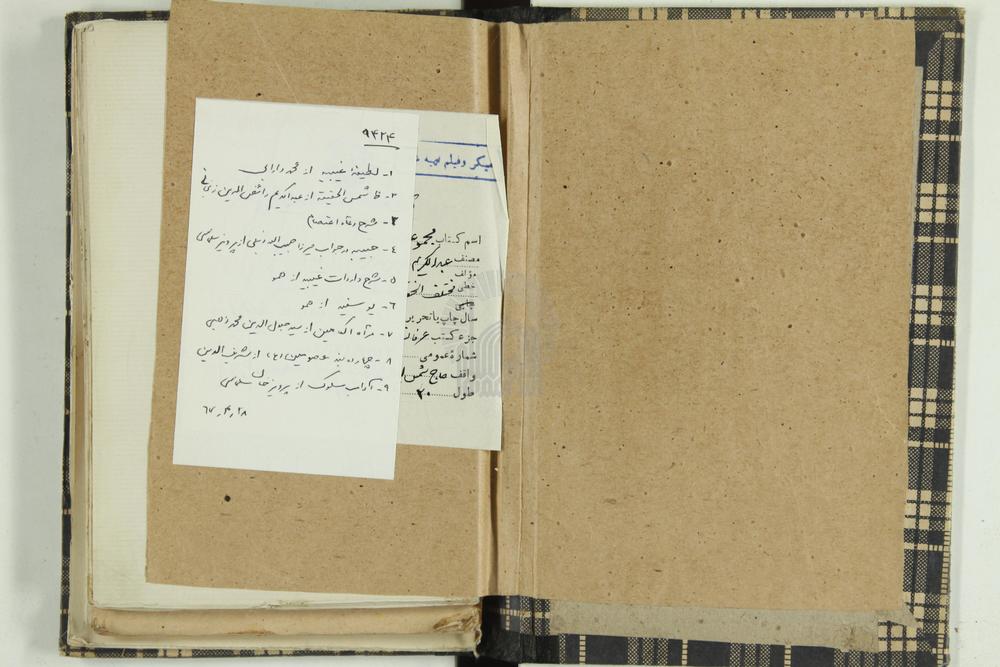 ۹۴۲۴
۱- لطیفهٔ غیبیه از محمد دارابی
۲- شمس الحقیقة از عبدالکریم رائض الدین زنجانی
۳- شرح دعاء اعتصام
٤- حبیبیه در جواب میرزا حبیب الله از پرویز سلماسی
۵- شرح واردات غیبیه از همو
٦- یوسفیه از همو
۷- مرآة از سید جلال الدین محمد
۸- چهارده بند معصومین (ع) از شرف الدین
۹- آداب سلوک از پرویز خان سلماسی
٦٧٫۴٫۲۸
میکروفیلم تهیه
اسم کتاب مجموعه
مصنف عبدالکریم
مؤلف
خطی مختلف
چاپی
سال چاپ یا تحریر
جزء کتب عرفان
شمارهٔ عمومی
واقف حاج شمس
طول ۲۰